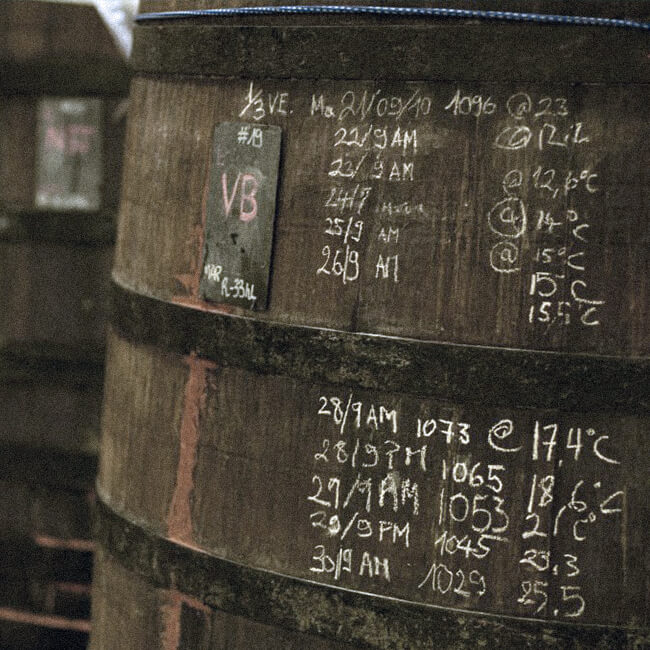 1/3 VE. Ma 21/09/10 1096 @ 23
#19
VB
MAR
R-33hL
22/9 AM @ 12.2
23/9 AM @ 12,6°C
24/9 @ 14°C
25/9 AM @ 15°C
26/9 AM 15°C
15,5°C
28/9 AM 1073 @ 17,4°C
28/9 PM 1065 18,6°C
29/9 AM 1053 21°C
29/9 PM 1045 23.3
30/9 AM 1029 25.5